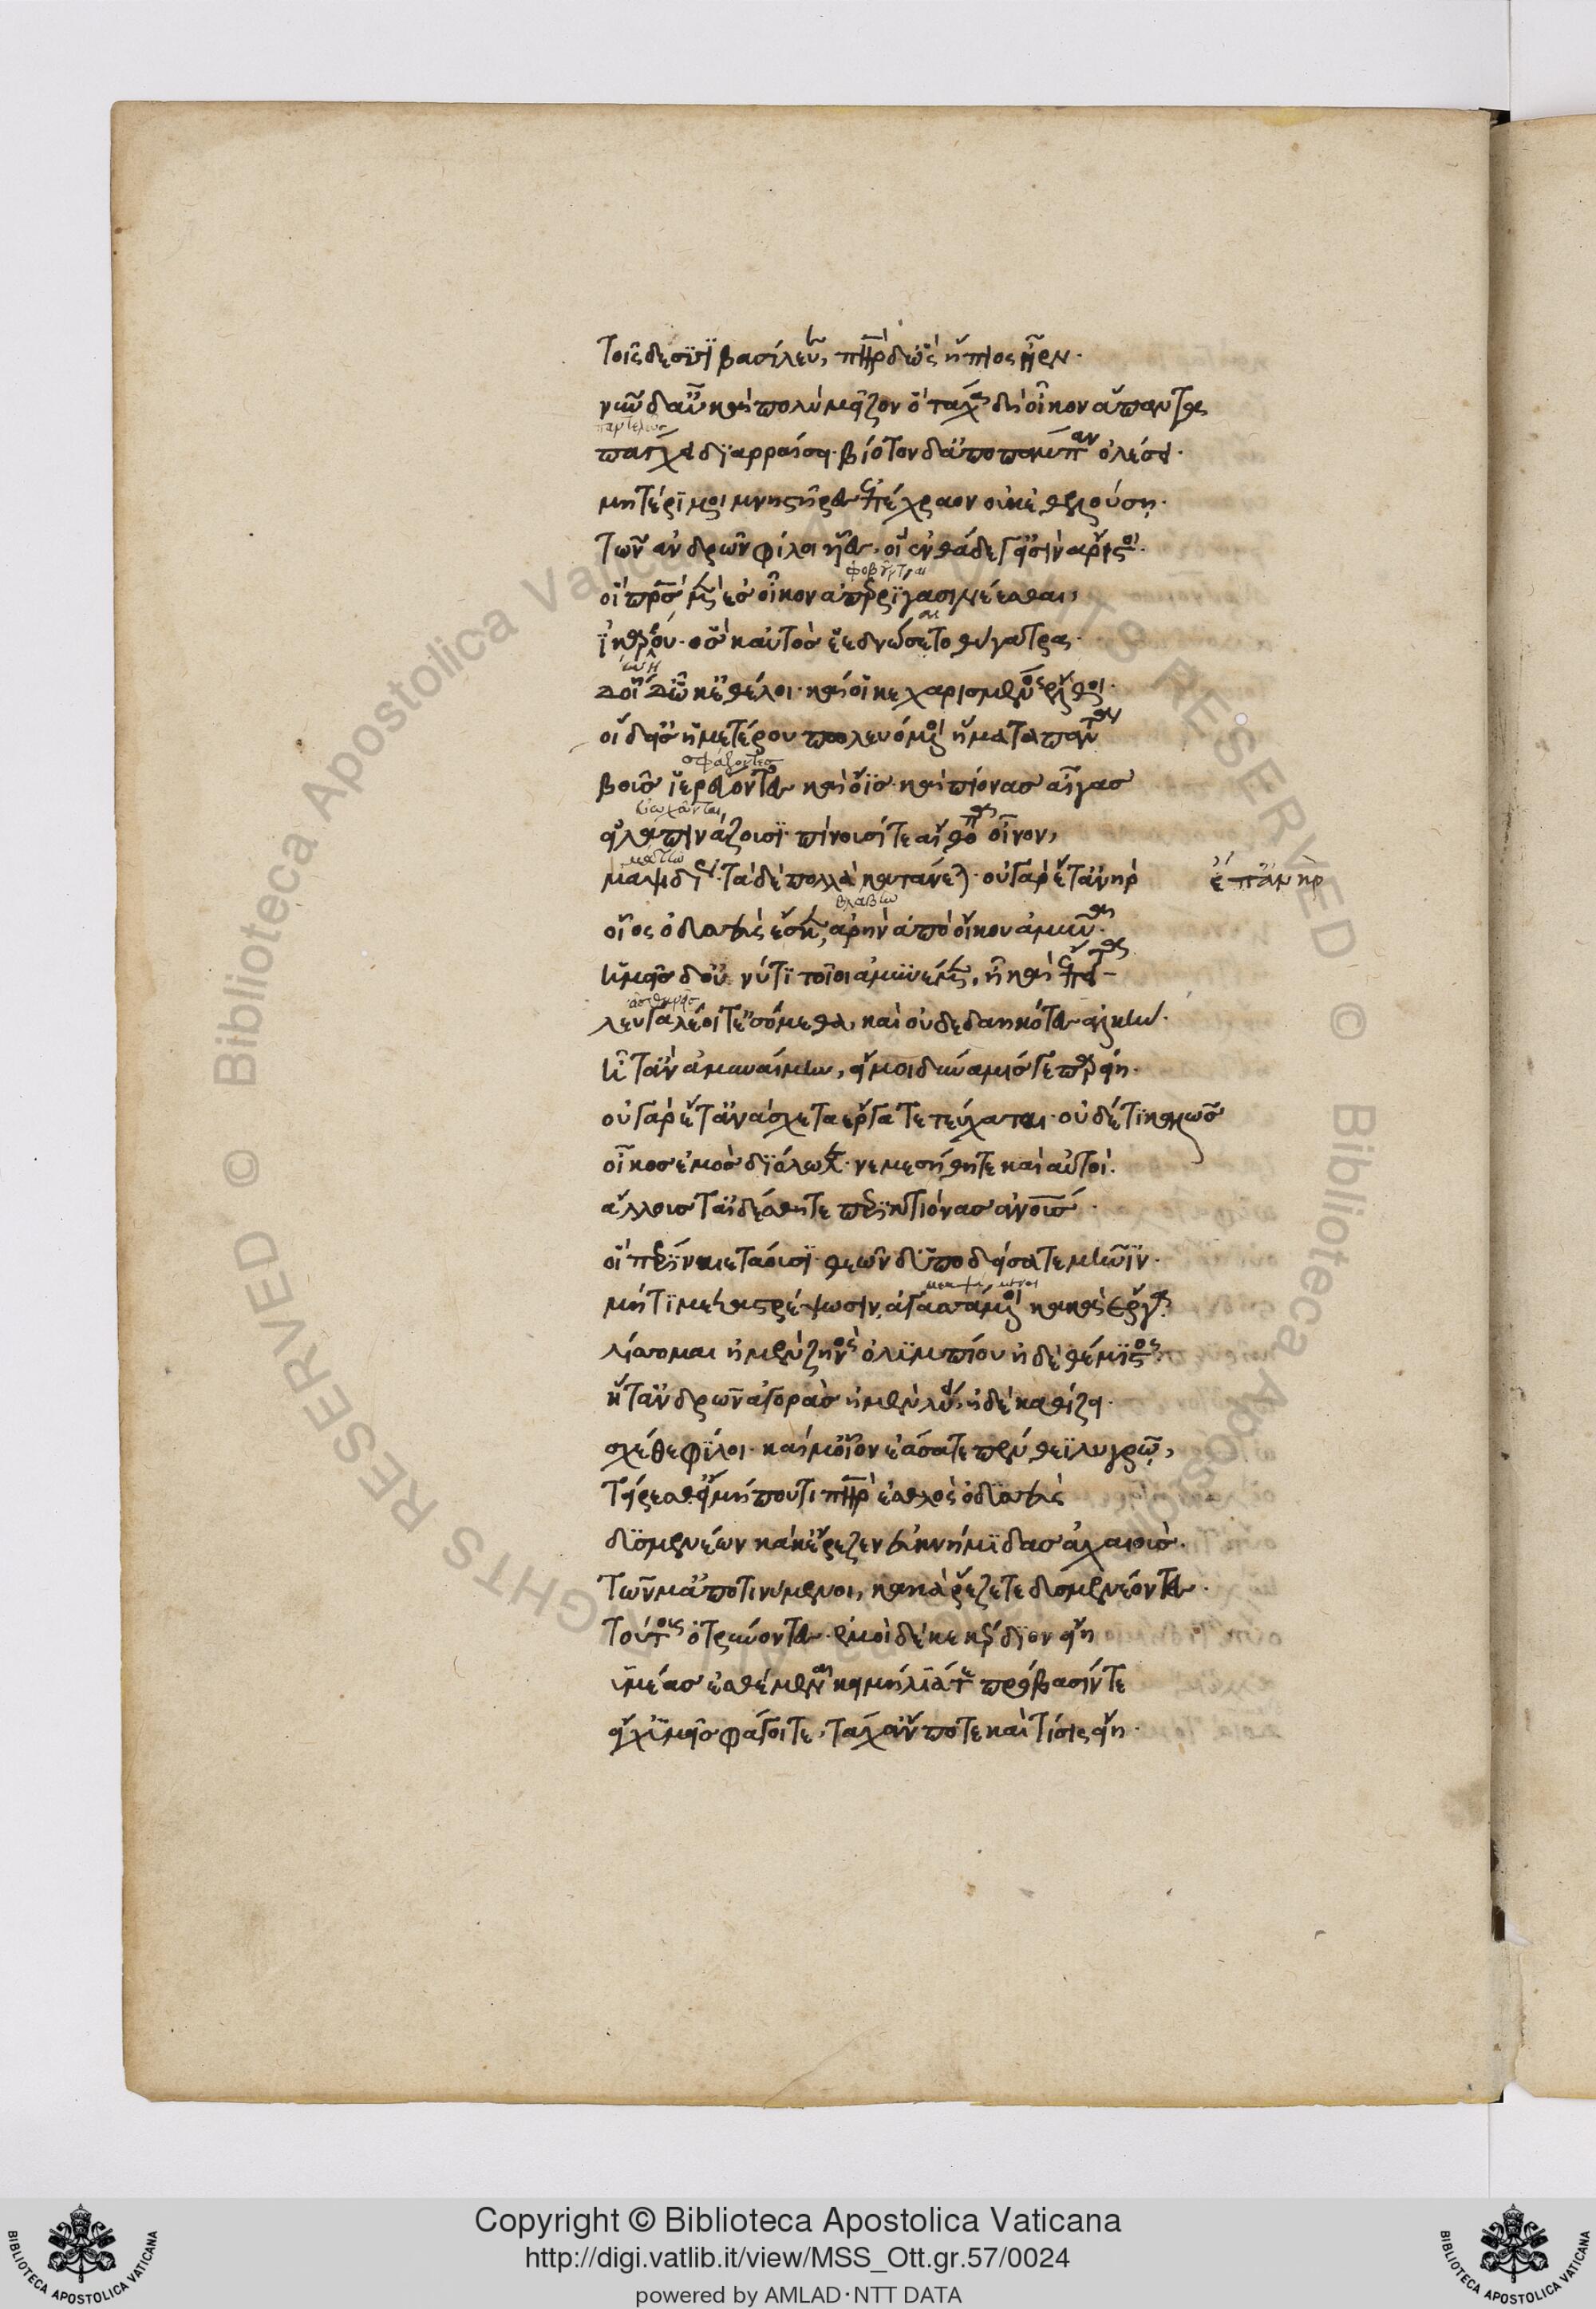 τοῖσδεσιν βασίλευε, πατὴρ δ' ὡς ἤπιος ἦεν.
νῦν δ' αὖ καὶ πολὺ μεῖζον ὃ τάχα δὴ οἶκον ἅπαντα
παντελῶς
πάγχυ διαρραίσει. βίοτον δ' ἀπὸ πάμπαν ὀλέσει.
μητέρι μοι μνηστῆρες ἐπέχραον οὐκ ἐθελούσῃ.
τῶν ἀνδρῶν φίλοι υἷες. οἳ ἐνθάδε γ' εἰσὶν ἄριστοι.
φοβοῦνται
οἳ πρὸς μὲν ἐς οἶκον ἀπερρίγασι νέεσθαι,
ἰκαρίου. ὅς κ' αὐτὸς ἐεδνώσετο θύγατρας.
αι
δοίη δ' ᾧ κ' ἐθέλοι. καί οἱ κεχαρισμένος ἔλθοι.
οἱ δ' εἰς ἡμετέρου πωλεύμενοι ἤματα πάντα
σφάζοντες
βοῦς ἱερεύοντες καὶ ὄϊς καὶ πίονας αἶγας
εὐωχῶνται,
εἰλαπινάζουσι. πίνουσί τε αἴθοπα οἶνον,
ματίω
μαψιδίως. τὰ δὲ πολλὰ κατάνεται. οὐ γὰρ ἔτ' ἀνήρ
ἔπ' ἀνὴρ
βλάβην
οἷος ὀδυσσεὺς ἔσκεν, ἀρὴν ἀπὸ οἴκου ἀμῦναι.
ἡμεῖς δ' οὔ νύ τι τοῖοι ἀμυνέμεν, ἦ καὶ ἔπειτα
ἀσθενεῖς
λευγαλέοι τ' ἐσόμεθα, καὶ οὐ δεδαηκότες ἀλκήν.
ἦ τ' ἂν ἀμυναίμην, εἴ μοι δύναμίς γε παρείη.
οὐ γὰρ ἔτ' ἀνάσχετα ἔργα τετεύχαται. οὐδ' ἔτι καλῶς
οἶκος ἐμὸς διόλωλε. νεμεσήθητε καὶ αὐτοί.
ἄλλους τ' αἰδέσθητε περικτίονας ἀνθρώπους
οἳ περιναιετάουσι. θεῶν δ' ὑποδείσατε μῆνιν.
μεμψάμενοι
μή τι μεταστρέψωσιν ἀγασσάμενοι κακὰ ἔργα.
λίσσομαι ἠμὲν ζηνὸς ὀλυμπίου ἠδὲ θέμιστος
ἥ τ' ἀνδρῶν ἀγορὰς ἠμὲν λύει ἠδὲ καθίζει.
σχέσθε φίλοι. καί μ' οἶον ἐάσατε πένθεϊ λυγρῷ,
τείρεσθ' εἰ μή πού τι πατὴρ ἐσθλὸς ὀδυσσεὺς
δυσμενέων κάκ' ἔρεξεν ἐϋκνήμιδας ἀχαιούς.
τῶν μ' ἀποτινύμενοι, κακὰ ῥέζετε δυσμενέοντες.
τούτους ὀτρύνοντες. ἐμοὶ δέ κε κέρδιον εἴη
ὑμέας ἐσθέμεναι κειμήλιά τε πρόβασίν τε
εἴ χ' ὑμεῖς φάγοιτε, τάχ' ἄν ποτε καὶ τίσις εἴη.
Copyright © Biblioteca Apostolica Vaticana
http://digi.vatlib.it/view/MSS_Ott.gr.57/0024
powered by AMLAD·NTT DATA
BIBLIOTECA APOSTOLICA VATICANA
BIBLIOTECA APOSTOLICA VATICANA